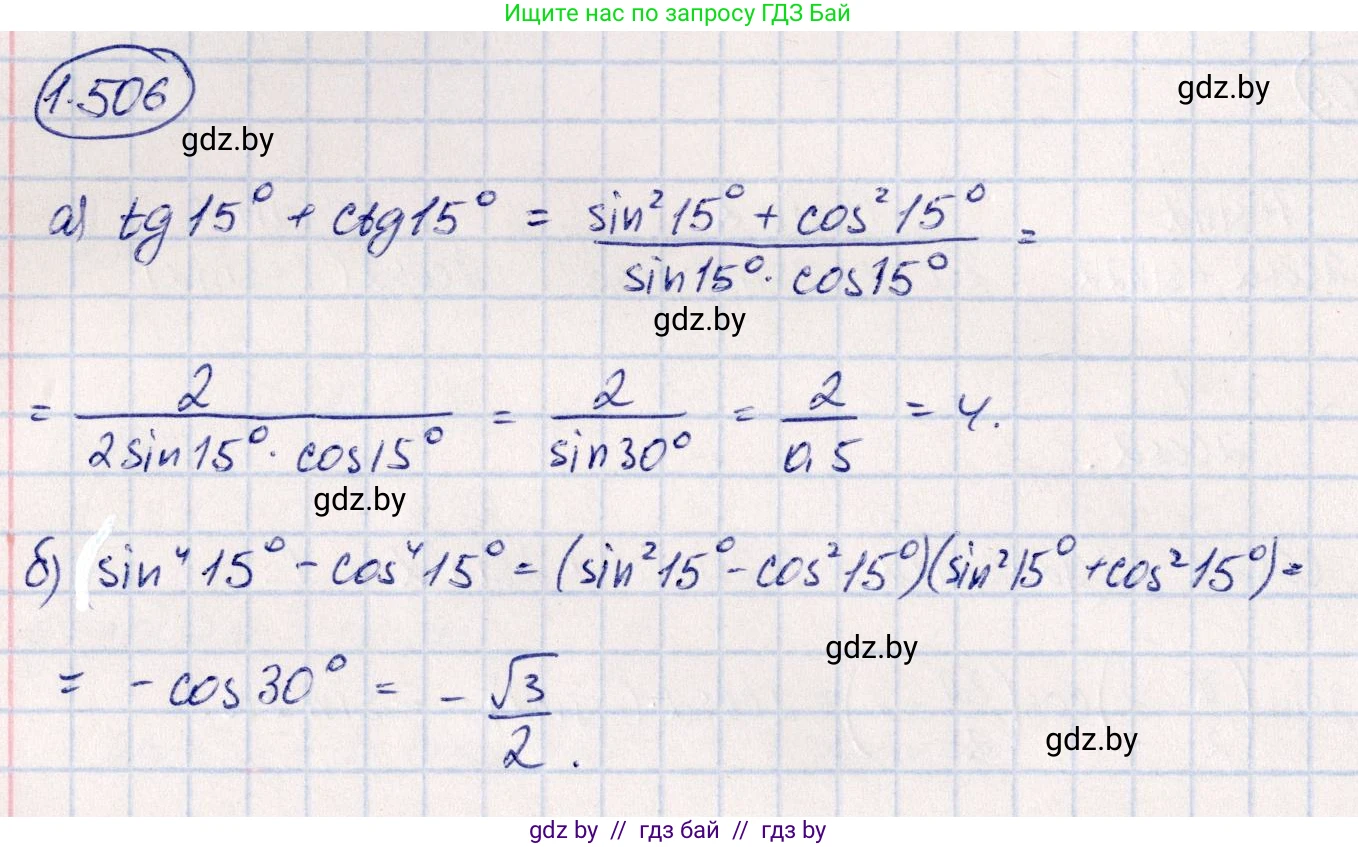 Ищите нас по запросу ГДЗ Бай
1.506
gdz.by
gdz.by
а) tg 15° + ctg 15° = (sin² 15° + cos² 15°) / (sin 15° · cos 15°) =
gdz.by
= 2 / (2 sin 15° · cos 15°) = 2 / sin 30° = 2 / 0,5 = 4.
gdz.by
б) (sin⁴ 15° - cos⁴ 15° = (sin² 15° - cos² 15°)(sin² 15° + cos² 15°) =
gdz.by
= - cos 30° = - √3 / 2 .
gdz.by
gdz by // гдз бай // гдз by